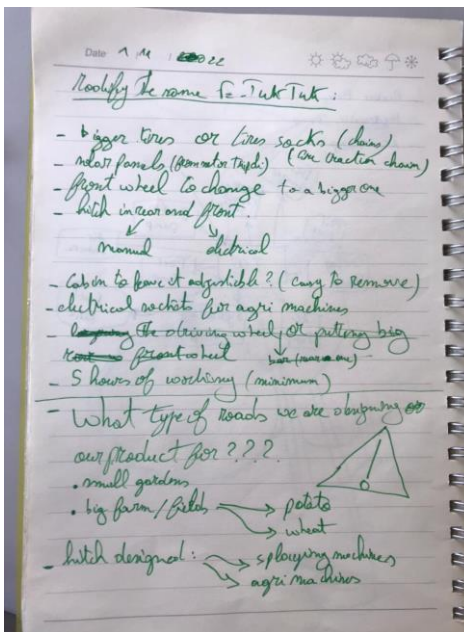 Date 1 11 2022
Modify the same E-TukTuk :
- bigger tires or tires socks (chains)
- solar panels (from motor ) (or traction chain)
- front wheel to change to a bigger one
- hitch in rear and front.
manual electrical
- Cabin to leave it adjustable ? (easy to remove)
- electrical sockets for agri machines
- the driving wheel, or putting big
front wheel bar
- 5 hours of working (minimum)
- What type of roads we are designing
our product for ? ? ?
. small gardens
. big farm / fields potato
wheat
- hitch designed : spraying machines
agri machines